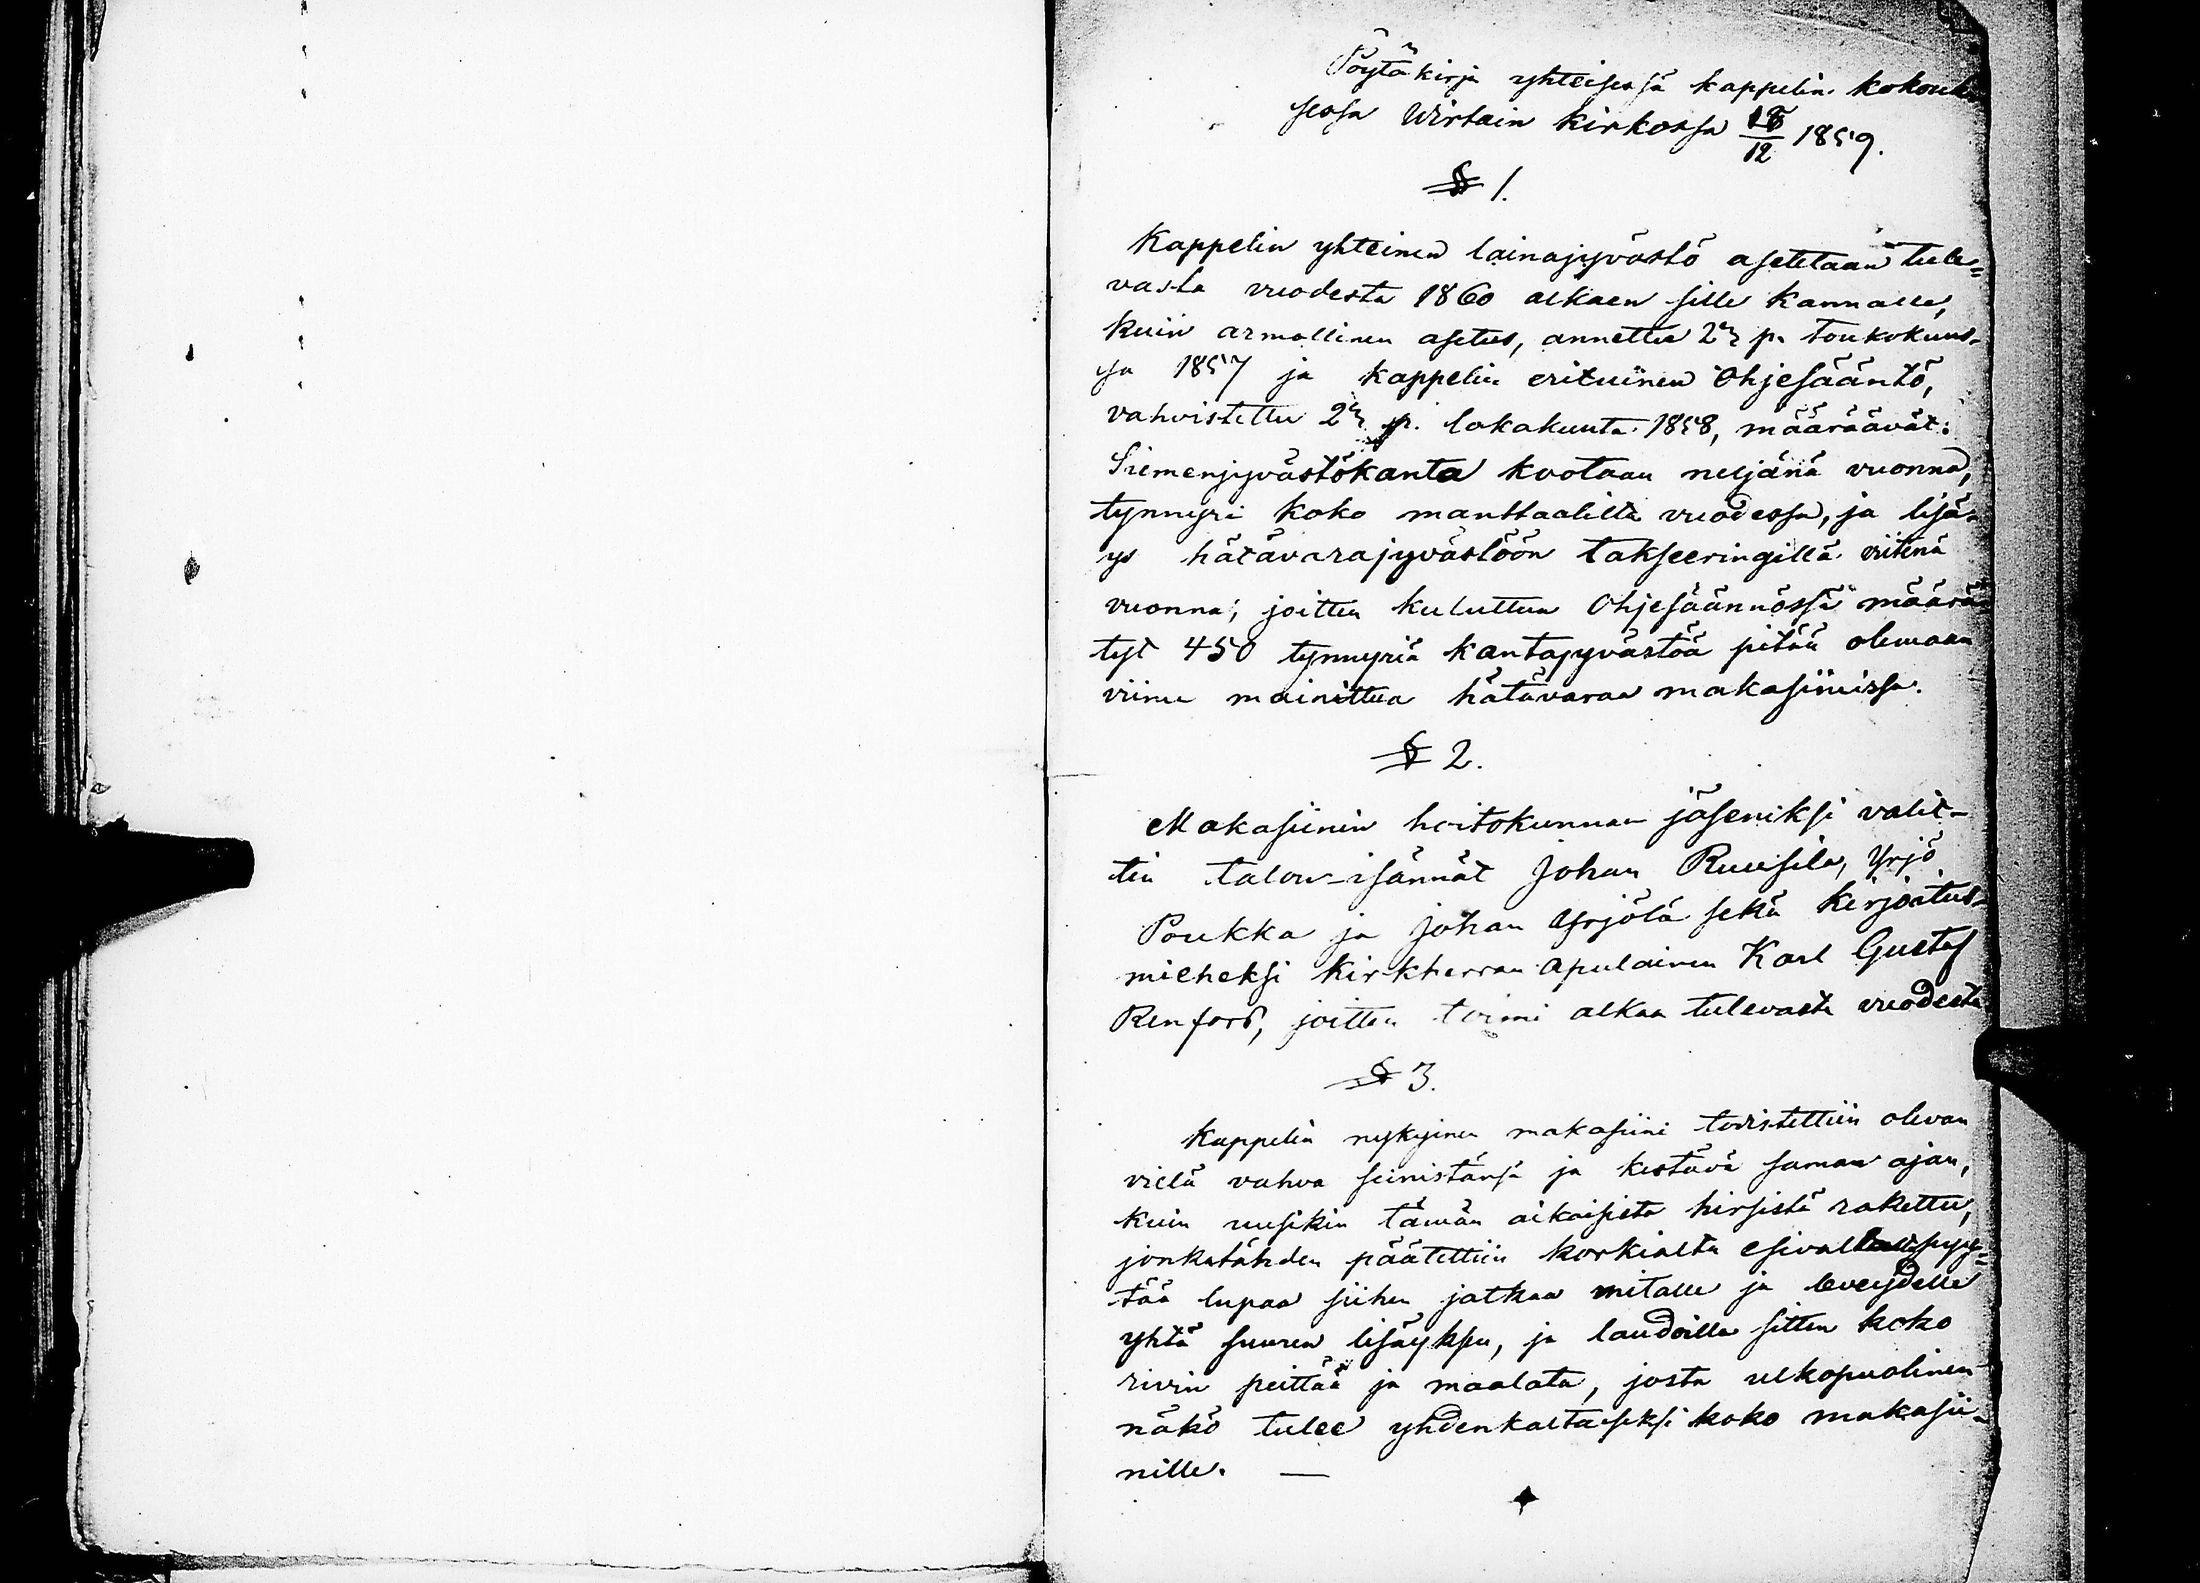 Pöytäkirja yhteisessä kappelin kokouk-
sessa Wirtain kirkossa 18/12 1859.
§ 1.
Kappelin yhteinen lainajyvästö asetetaan tule=
vasta vuodesta 1860 alkaen sille kannalle,
kuin armollinen asetus, annettu 22 p. toukokuus-
sa 1857 ja kappelin erituinen Ohjesääntö,
vahvistettu 22 p. lokakuuta 1858, määräävät:
Siemenjyvästökanta kootaan neljänä vuonna,
tynnyri koko manttaalilta vuodessa, ja lisä-
ys hätävarajyvästöön takseeringillä viitenä
vuonna; joitten kuluttua Ohjesäännössä määrä-
tyt 450 tynnyriä kantajyvästöä pitää olemaan
viime mainittua hätävaraa makasiinissa.
§ 2.
Makasiinin hoitokunnan jäseniksi valit-
tiin talon-isännät Johan Ruusila, Yrjö
Poukka ja Johan Yrjölä sekä kirjoitus-
mieheksi kirkherran apulainen Karl Gustaf
Renfors, joitten toimi alkaa tulevasta vuodesta
§ 3.
Kappelin nykyinen makasiini todistettiin olevan
vielä vahva seinistänsä ja kestävä saman ajan,
kuin uusikin tämän aikaisista hirsistä rakettu,
jonkatähden päätettiin korkialta esivallalta pyy=
tää lupaa siihen jatkaa mitalle ja leveydelle
yhtä suuren lisäyksen, ja laudoilla sitten koko
rivin peittää ja maalata, josta ulkopuolinen
näkö tulee yhdenkaltaiseksi koko makasii-
nille. —